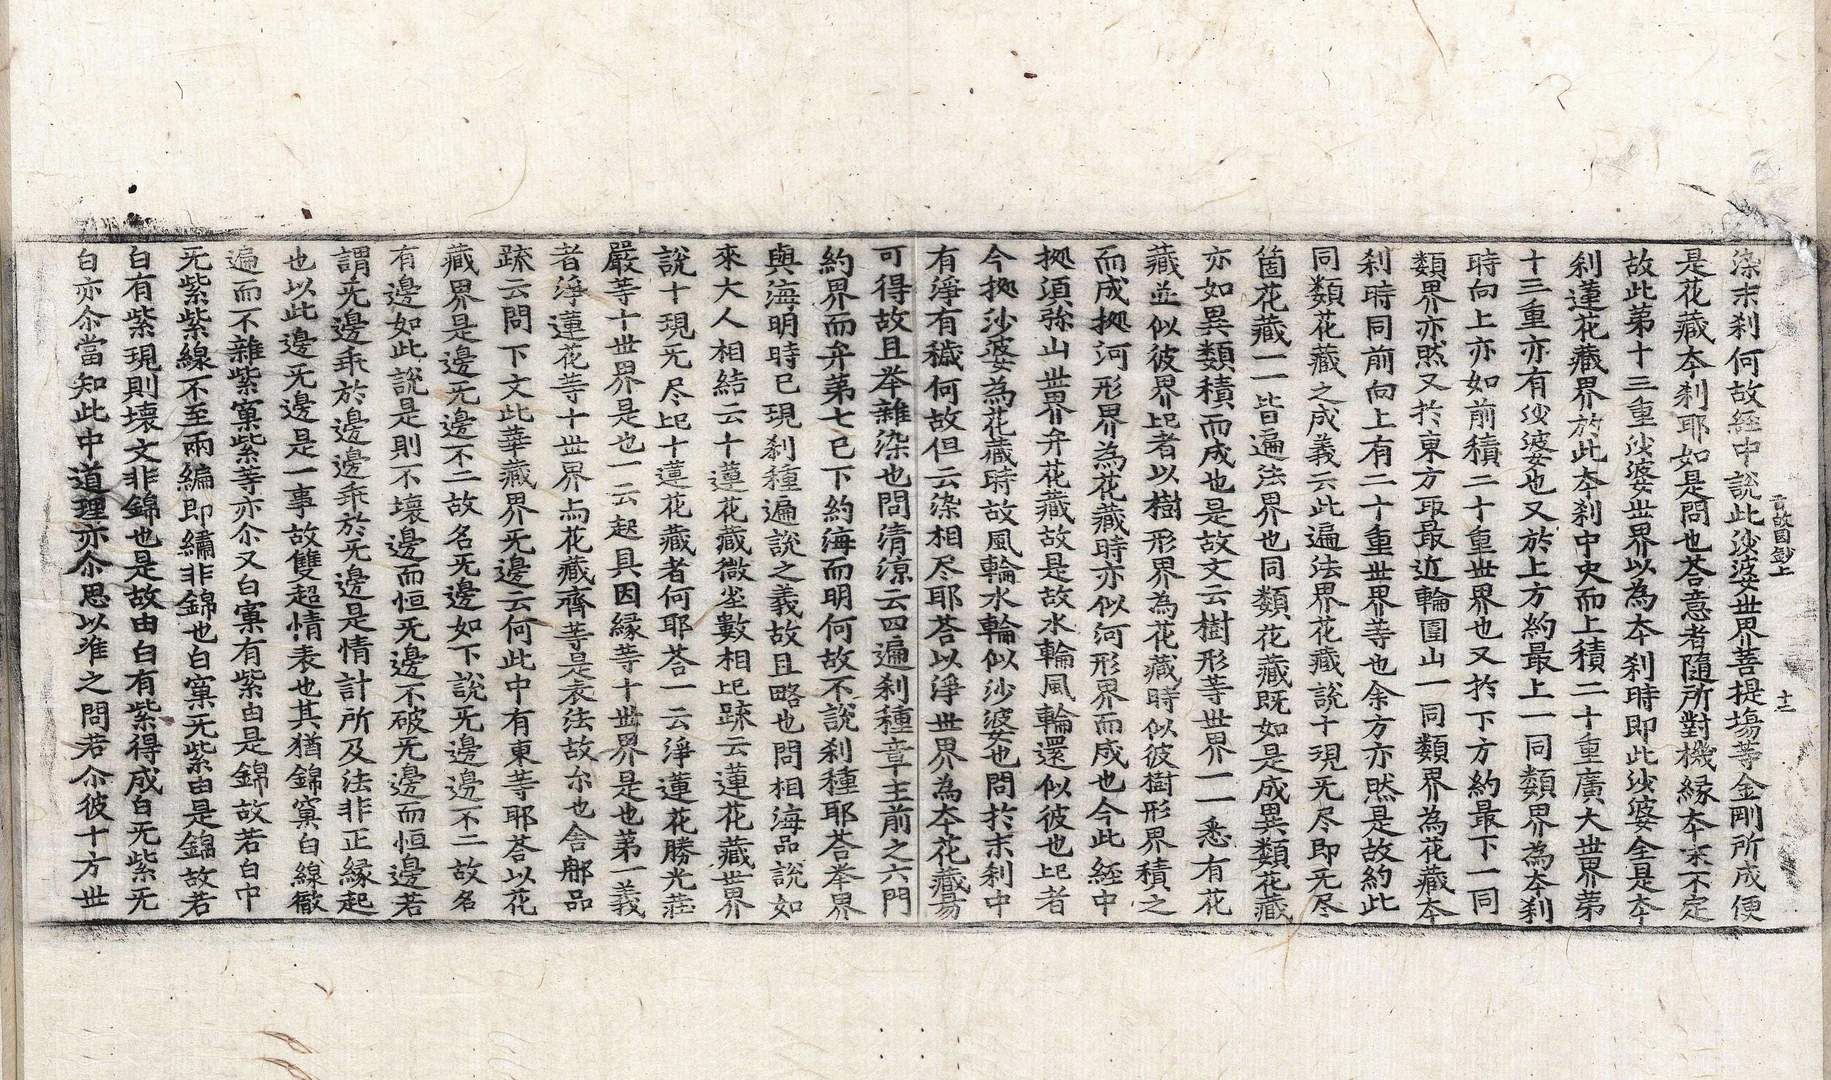 染末刹何故經中說此沙婆世界菩提塲等金剛所成便
是花藏本刹耶如是問也荅意者隨所對機縁本末不定
故此第十三重沙婆世界以為本刹時即此沙婆全是本
刹蓮花藏界於此本刹中央而上積二十重廣大世界第
十三重亦有沙婆也又於上方約最上一同類界為本刹
時向上亦如前積二十重世界也又扵下方約最下一同
類界亦然又扵東方取最近輪圍山一同類界為花藏本
刹時同前向上有二十重世界等也余方亦然是故約此
同類花藏之成義云此遍法界花藏說十現无尽即无尽
箇花藏一一皆遍法界也同類花藏既如是成異類花藏
亦如異類積而成也是故文云樹形等世界一一悉有花
藏並似彼界㠯者以樹形界為花藏時似彼樹形界積之
而成㧣河形界為花藏時亦似河形界而成也今此經中
㧣湏弥山世界弁花藏故是故水輪風輪還似彼也㠯者
今㧣沙婆為花藏時故風輪水輪似沙婆也問扵末刹中
有淨有穢何故但云染相尽耶荅以淨世界為本花藏易
可得故且举雜染也問清涼云四遍刹種章主前之六門
約界而弁第七已下約海而明何故不說刹種耶荅举界
與海明時已現刹種遍說之義故且略也問相海品說如
來大人相結云十蓮花藏微塵數相㠯䟽云蓮花藏世界
說十現无尽㠯十蓮花藏者何耶荅一云淨蓮花勝光莊
嚴等十世界是也一云起具因縁等十世界是也第一義
者淨蓮花等十世界与花藏齊等是表法故尒也舎郍品
䟽云問下文此華藏界无邊云何此中有東等耶荅以花
藏界是邊无邊不二故名无邊如下說无邊邊不二故名
有邊如此說是則不壞邊而恒无邊不破无邊而恒邊若
謂无邊乖於邊邊乖於无邊是情計所及法非正縁起
也以此邊无邊是一事故雙超情表也其猶錦窠白線徹
遍而不雜紫窠紫等亦尒又白窠有紫白是錦故若白中
无紫紫線不至兩編即繡非錦也白窠无紫白是錦故若
白有紫現則壞文非錦也是故由白有紫得成白无紫无
白亦尒當知此中道理亦尒思以准之問若尒彼十方世